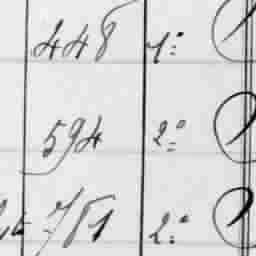 448 1º
594 2º
751 2º